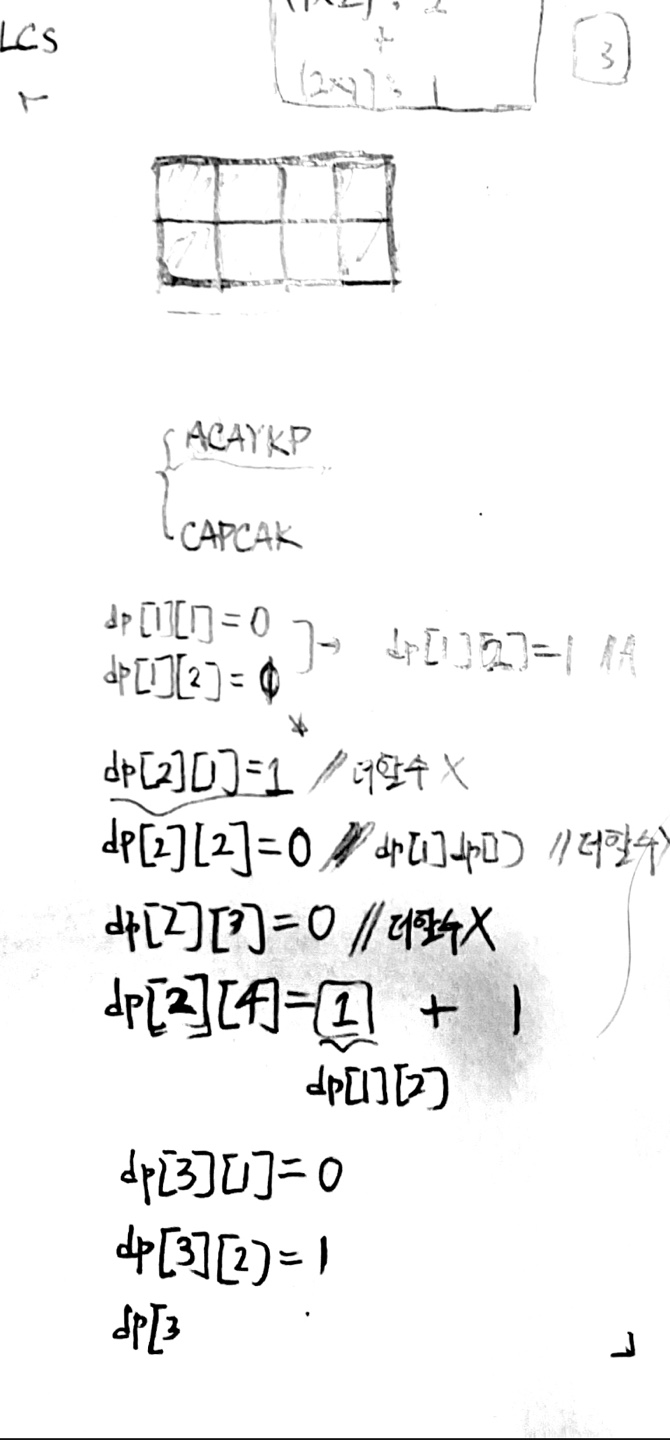 LCS
+
3
(2xy): 1
ACAYKP
CAPCAK
dp[1][1]=0
dp[1][2]=
→ dp[1][2]=1 //A
dp[2][1]=1 // 더할수 X
dp[2][2]=0 // dp[1] dp[] // 더할수X
dp[2][3]=0 // 더할수X
dp[2][4]=1 + 1
dp[1][2]
dp[3][1]=0
dp[3][2]=1
dp[3